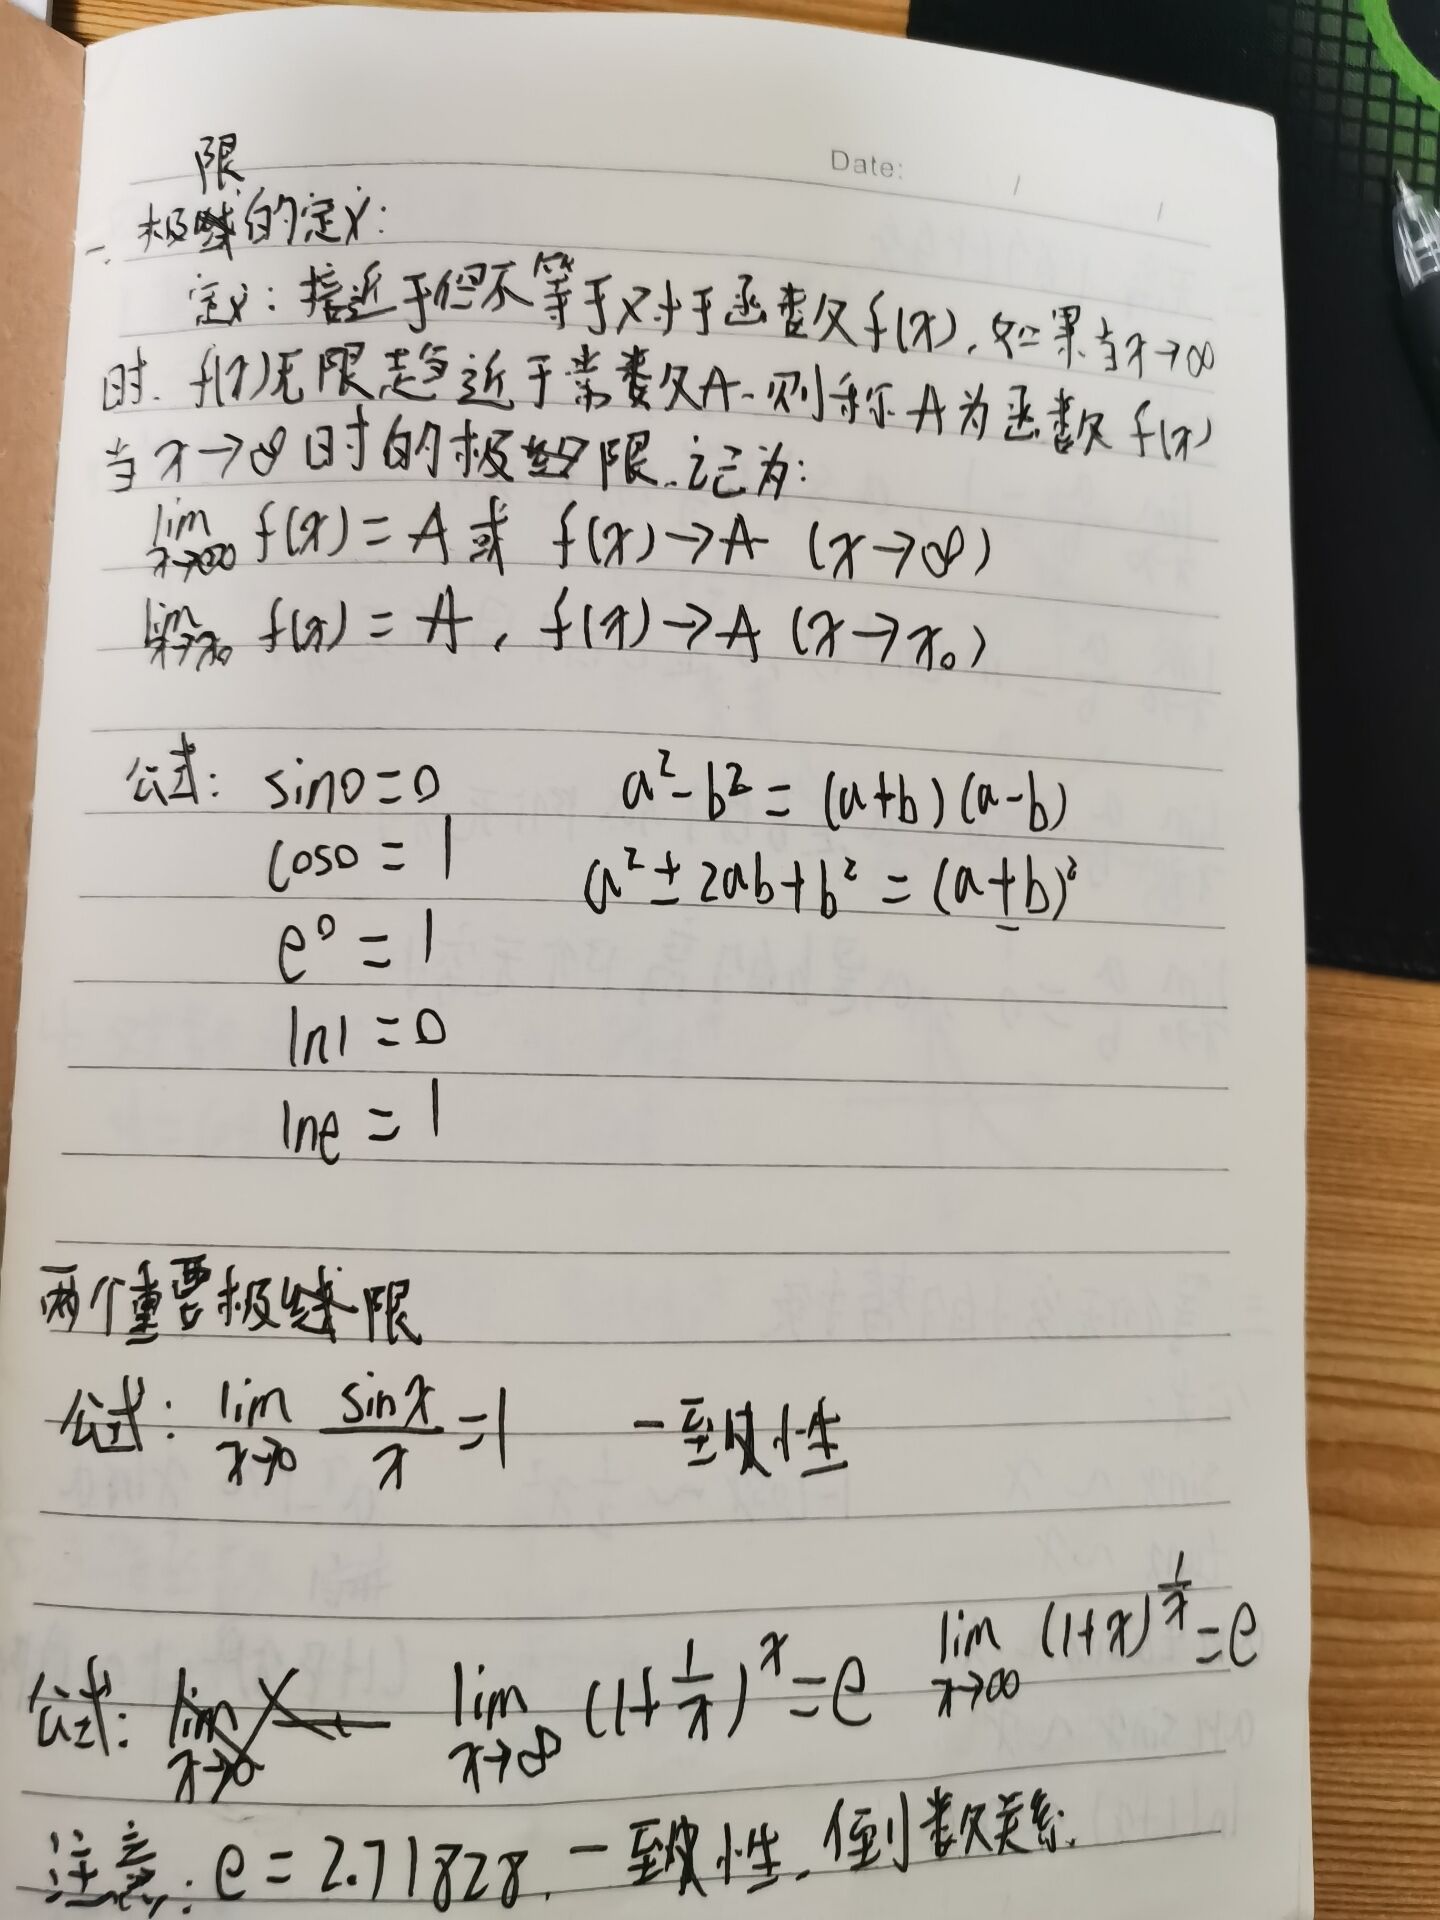 Date: / /
限
一、极的定义:
定义:接近于但不等于对于函数f(x),如果当x→∞
时.f(x)无限趋近于常数A、则称A为函数f(x)
当x→∞时的极限.记为:
lim x→∞ f(x)=A或 f(x)→A (x→∞)
lim x→x₀ f(x)=A, f(x)→A (x→x₀)
公式: sin0=0 a²-b²=(a+b)(a-b)
cos0=1 a²±2ab+b²=(a±b)²
e⁰=1
ln1=0
lne=1
两个重要极限
公式: lim x→0 sinx/x =1 一致性
公式: lim x→∞ (1+1/x)^x=e lim x→∞ (1+x)^(1/x)=e
注意:e=2.71828.一致性.倒数关系.